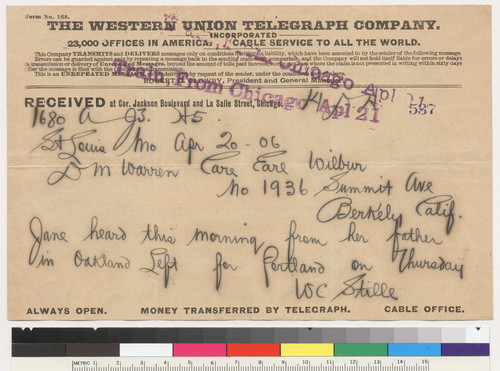 Form No. 168.
THE WESTERN UNION TELEGRAPH COMPANY.
INCORPORATED
23,000 OFFICES IN AMERICA. CABLE SERVICE TO ALL THE WORLD.
This Company TRANSMITS and DELIVERS messages only on conditions limiting its liability, which have been assented to by the sender of the following message.
Errors can be guarded against only by repeating a message back to the sending station for comparison, and the Company will not hold itself liable for errors or delays
in transmission or delivery of Unrepeated Messages, beyond the amount of tolls paid thereon, nor in any case where the claim is not presented in writing within sixty days
after the message is filed with the Company for transmission.
This is an UNREPEATED MESSAGE, and is delivered by request of the sender, under the conditions named above.
ROBERT C. CLOWRY, President and General Manager.
Chicago Apl 21
Train From Chicago Apl 21
RECEIVED at Cor. Jackson Boulevard and La Salle Street, Chicago.
537
1680 A
St Louis Mo Apr 20-06
D M Warren Care Earl Wilbur
No 1936 Summit Ave
Berkely Calif.
Jane heard this morning from her father
in Oakland Left for Portland on Thursday
WC Stille
ALWAYS OPEN. MONEY TRANSFERRED BY TELEGRAPH. CABLE OFFICE.
METRIC 1 2 3 4 5 6 7 8 9 10 11 12 13 14 15